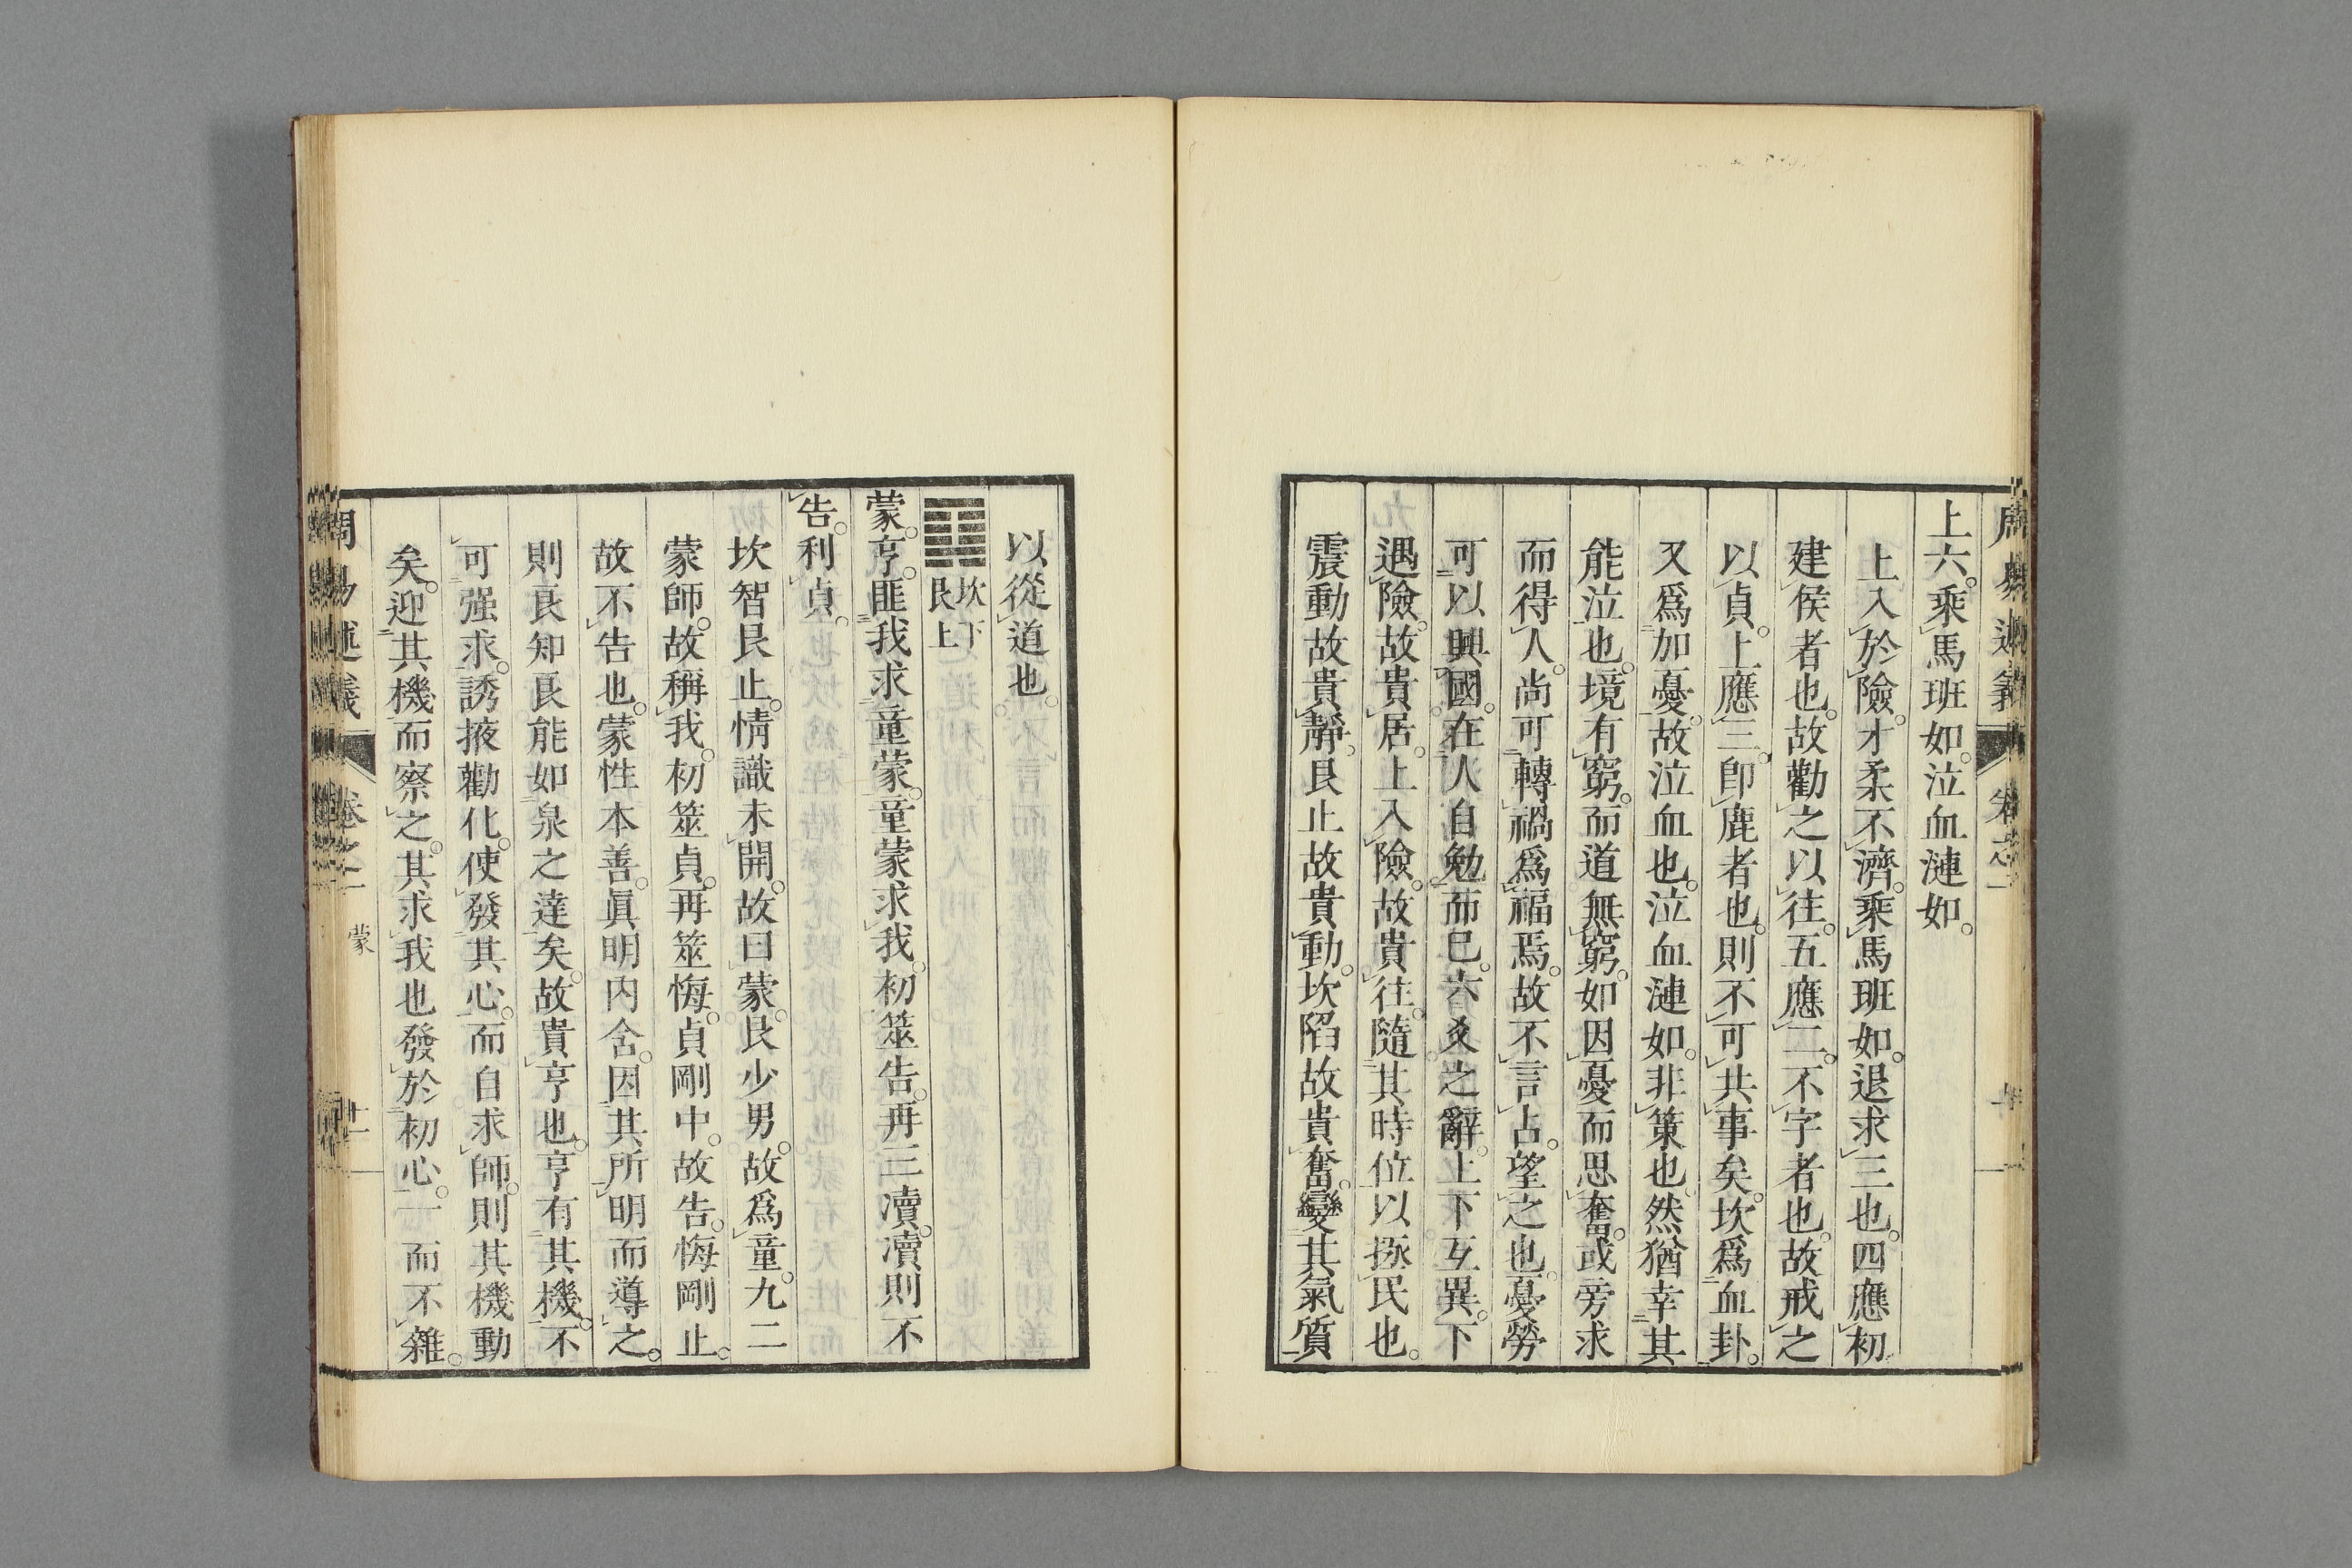 上六。乘馬班如。泣血漣如。
上入於險。才柔不濟。乘馬班如。退求三也。四應初
建侯者也。故勸之以往。五應二。不字者也。故戒之
以貞。上應三。卽鹿者也。則不可共事矣。坎爲血卦。
又爲加憂。故泣血也。泣血漣如。非策也。然猶幸其
能泣也。境有窮。而道無窮。如因憂而思奮。或旁求
而得人。尚可轉禍爲福焉。故不言占。望之也。憂勞
可以興國。在人自勉而已。六爻之辭。上下互異。下
遇險。故貴居。上入險。故貴往。隨其時位以拯民也。
震動故貴靜。艮止故貴動。坎陷故貴奮。變其氣質
以從道也。
坎下
艮上
蒙。亨。匪我求童蒙。童蒙求我。初筮告。再三瀆。瀆則不
告。利貞。
坎智艮止。情識未開。故曰蒙。艮少男。故爲童。九二
蒙師。故稱我。初筮貞。再筮悔。貞剛中。故告。悔剛止。
故不告也。蒙性本善。眞明內含。因其所明而導之。
則良知良能如泉之達矣。故貴亨也。亨有其機。不
可强求。誘掖勸化。使發其心。而自求師。則其機動
矣。迎其機而察之。其求我也發於初心。一而不雜。
周易述義
卷之一
蒙